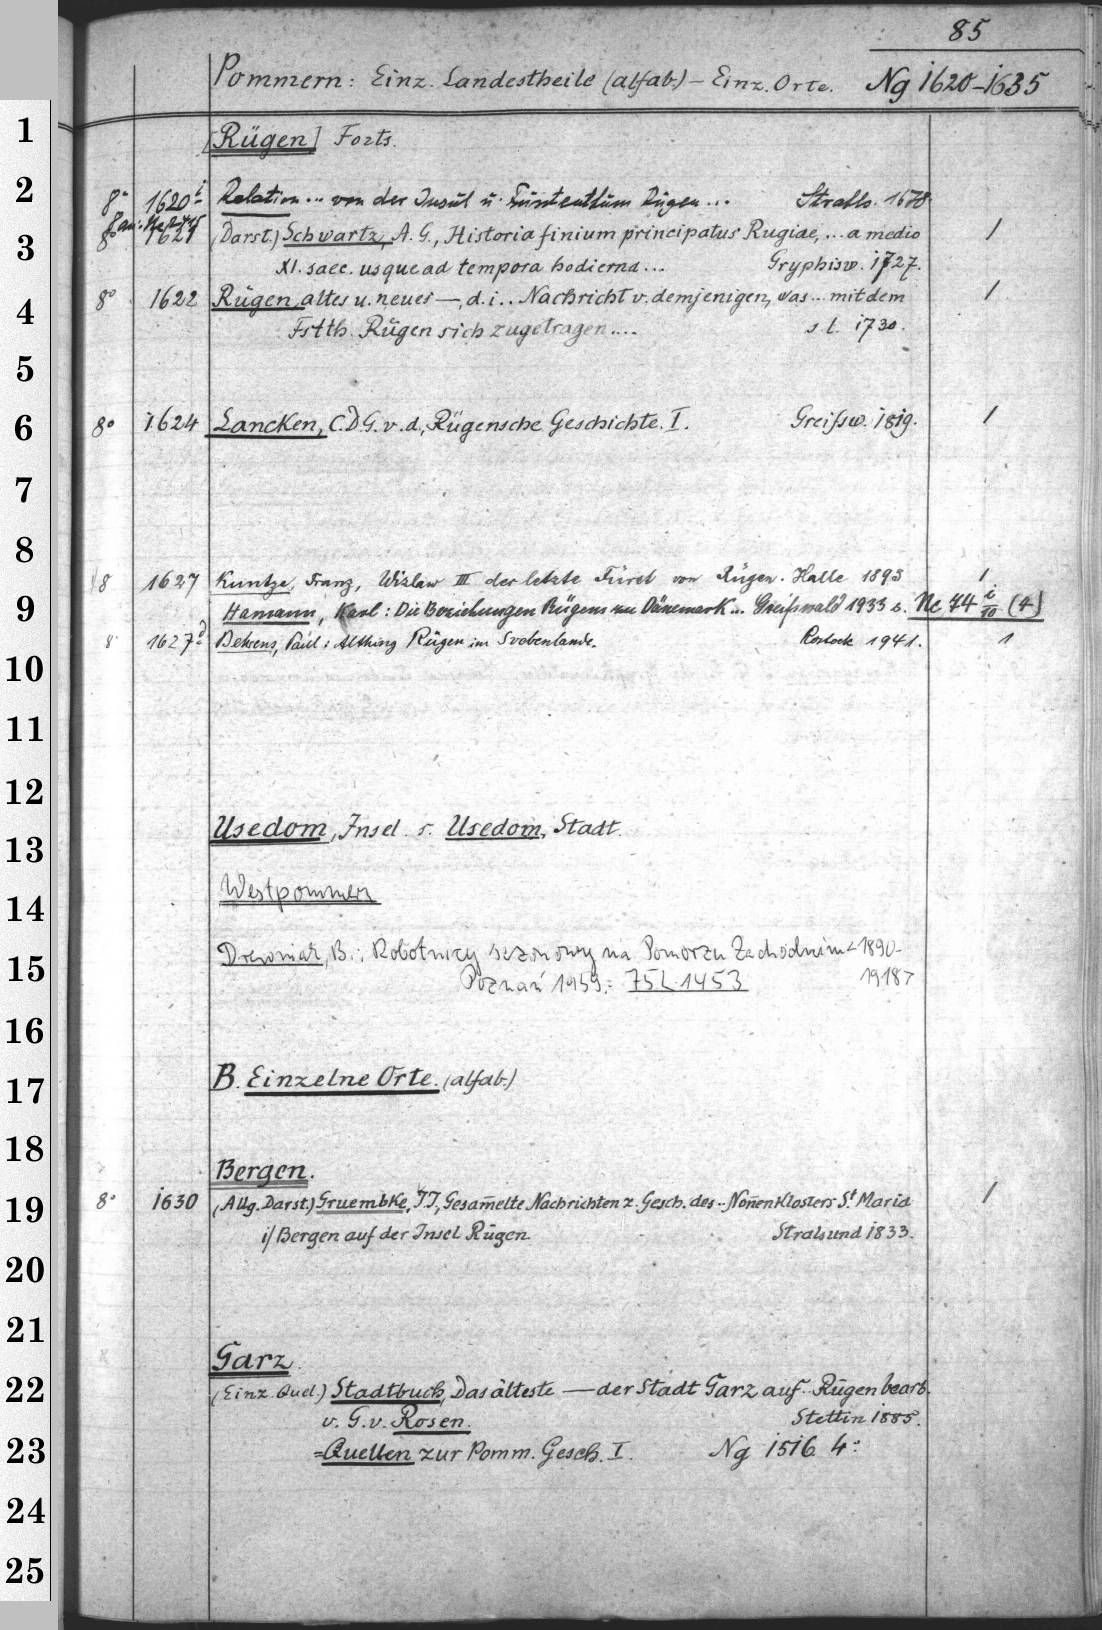 85
Pommern: Einz. Landestheile (alfab.) – Einz. Orte. Ng 1620–1635
1
[Rügen] Forts.
2
8° 1620 i Relation ... von der Insul u. Fürstenthum Rügen ... Strals. 1678
3
8° 1621 (Darst.) Schwartz, A. G., Historia finium principatus Rugiae, ... a medio /
XI. saec. usque ad tempora hodierna ... Gryphisw. 1727.
4
8° 1622 Rügen, altes u. neues —, d. i. .. Nachricht v. demjenigen, was ... mit dem /
Fstth. Rügen sich zugetragen .... s. l. 1730.
5
6
8° 1624 Lancken, C. D. G. v. d., Rügensche Geschichte. I. Greifsw. 1819. /
7
8
8 1627 Kuntze, Franz, Wizlaw III der letzte Fürst von Rügen. Halle 1893 1
9
Hamann, Karl: Die Beziehungen Rügens zu Dänemark ... Greifswald 1933 s. Nc 74 i/10 (4)
8° 1627 d Behrens, Paul: Althing Rügen im Svebenlande. Rostock 1941. 1
10
11
12
13
Usedom, Insel s. Usedom, Stadt.
14
Westpommern
15
Drewniak, B.: Robotnicy sezonowy na Pomorzu Zachodnim <1890–
Poznań 1959.= 75 L 1453 1918>
16
17
B. Einzelne Orte. (alfab.)
18
Bergen.
19
8° 1630 (Allg. Darst.) Gruembke, J. J., Gesam̄elte Nachrichten z. Gesch. des .. Non̄enklosters St Maria /
i/ Bergen auf der Insel Rügen. Stralsund 1833.
20
21
Garz.
22
(Einz. Quel.) Stadtbuch, Das älteste — der Stadt Garz auf Rügen bearb.
v. G. v. Rosen. Stettin 1885.
23
=Quellen zur Pomm. Gesch. I. Ng 1516 4°
24
25